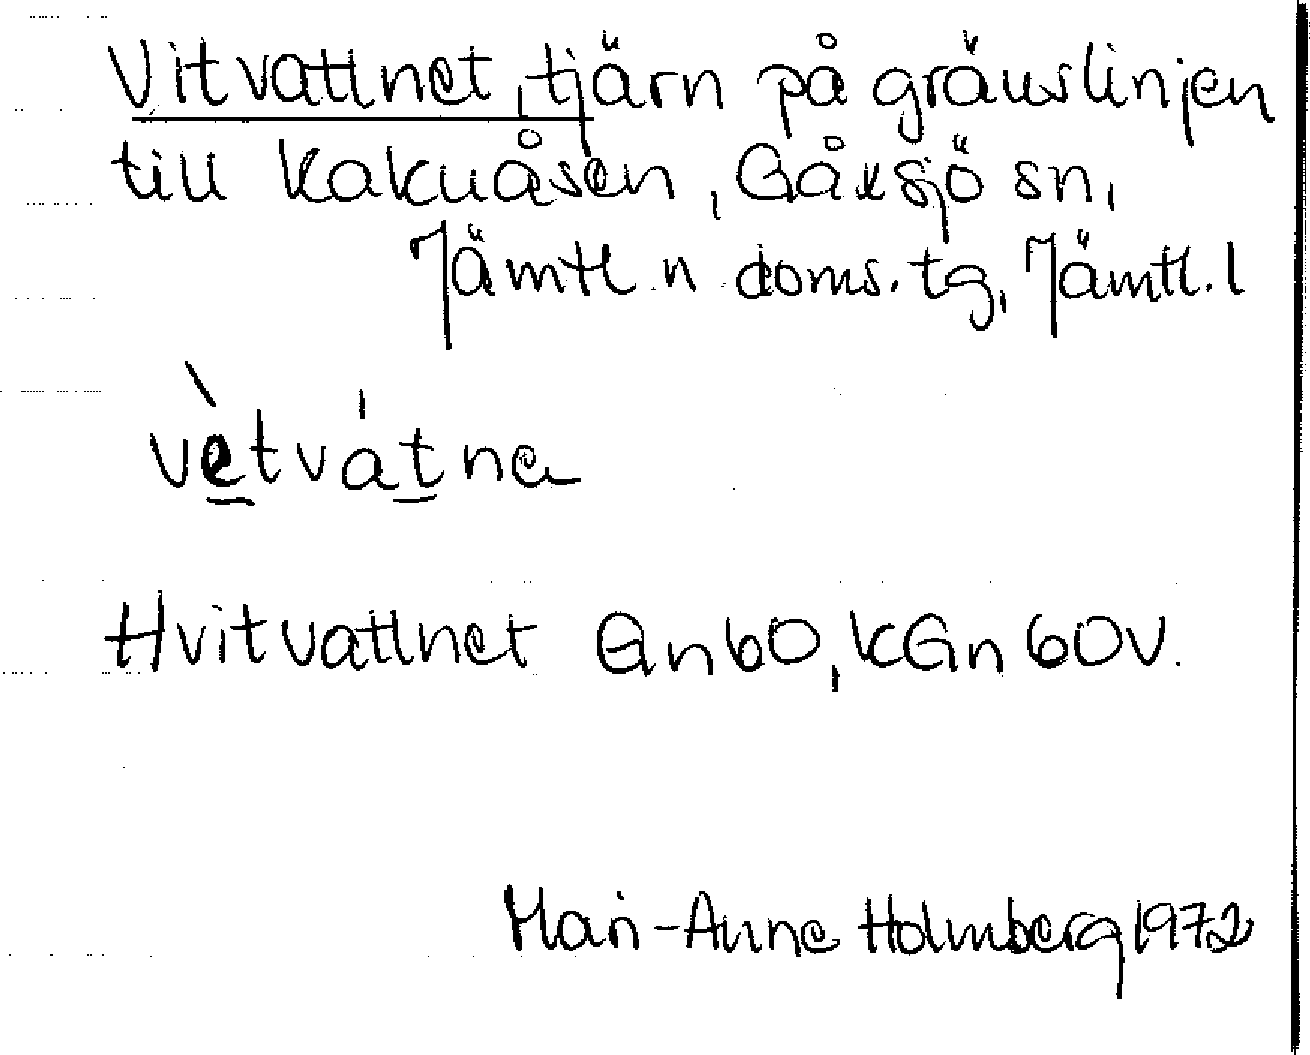 Vitvattnet, tjärn på gränslinjen
till Kakuåsen, Gåxsjö sn,
Jämtl. n doms. tg, Jämtl. l
vètvátna
Hvitvattnet Gn 60, kGn 60V.
Mari-Anne Holmberg 1972